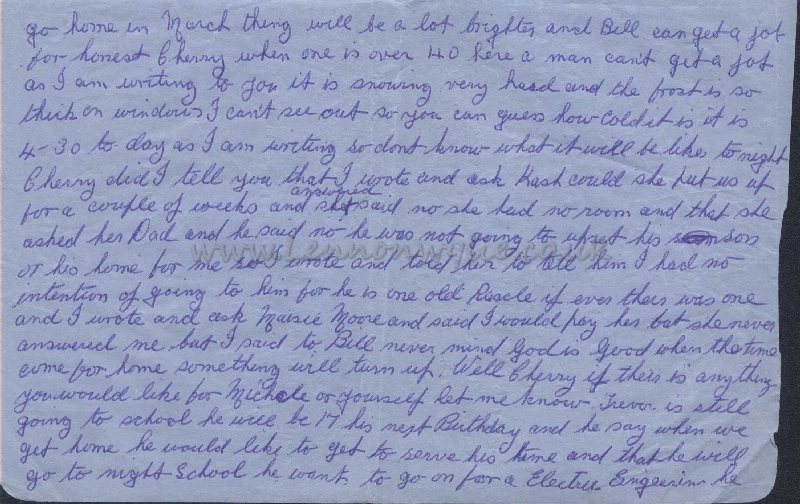 go home in March thing will be a lot brighter and Bill can get a jot
for honest Cherry when one is over 40 here a man can't get a jot
as I am writing to you it is snowing very head and the frost is so
thick on windows I can't see out so you can guess how cold it is it is
4-30 to day as I am writing so dont know what it will be like to night
Cherry did I tell you that I wrote and ask Kash could she put us up
for a couple of weeks and she answered said no she had no room and that she
asked her Dad and he said no he was not going to upset his son
or his home for me so I wrote and told her to tell him I had no
intention of going to him for he is one old Rascle if ever theis was one
and I wrote and ask Maisie Moore and said I would pay her but she never
answered me but I said to Bill never mind God is Good when the time
come for home something will turn up. Well Cherry if theis is anything
you would like for Michele or yourself let me know. Trevor is still
going to school he will be 17 his next Birthday and he say when we
get home he would like to get to serve his time and that he will
go to night School he want to go on for a Electric Engeerin he
www.Lennonwylie.co.uk